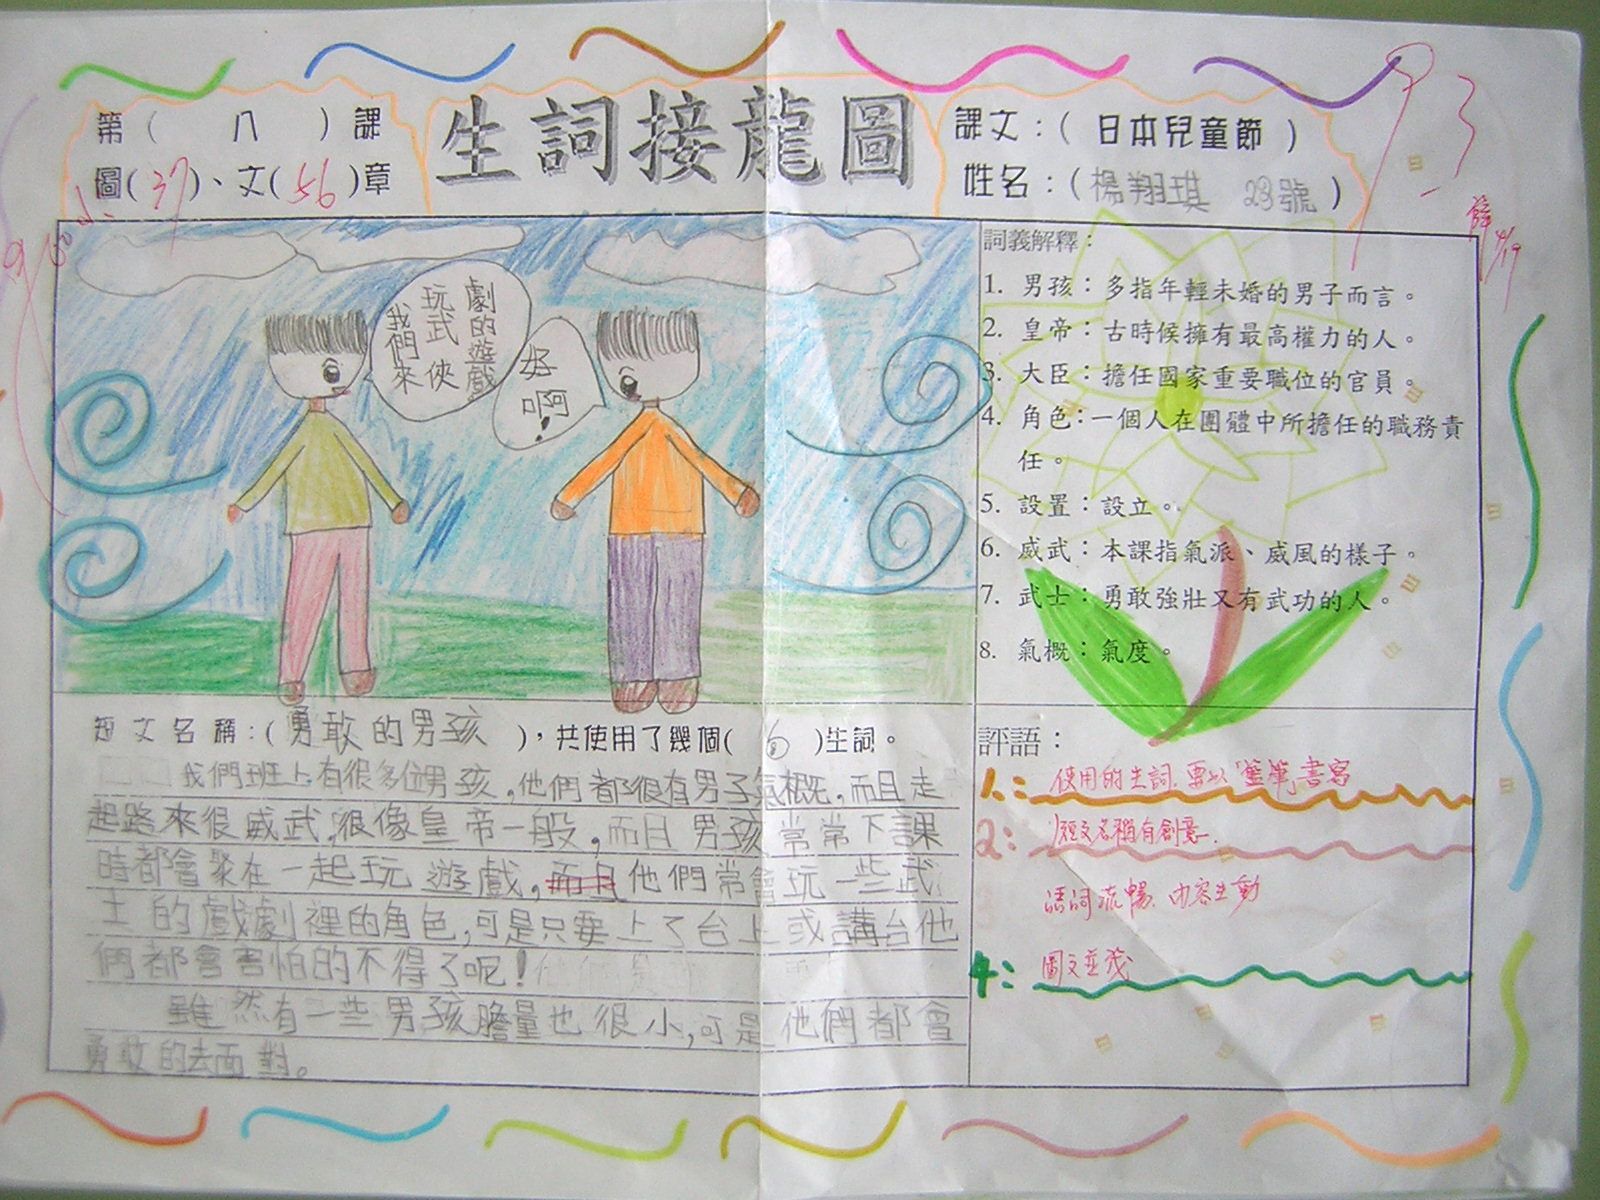 第( 八 )課
圖(37)、文(56)章
生詞接龍圖
課文：( 日本兒童節 )
姓名：(楊翔琪 23號 )
93
我們來玩武俠劇的遊戲
好啊！
詞義解釋：
1. 男孩：多指年輕未婚的男子而言。
2. 皇帝：古時候擁有最高權力的人。
3. 大臣：擔任國家重要職位的官員。
4. 角色：一個人在團體中所擔任的職務責
任。
5. 設置：設立。
6. 威武：本課指氣派、威風的樣子。
7. 武士：勇敢強壯又有武功的人。
8. 氣概：氣度。
短文名稱：(勇敢的男孩 )，共使用了幾個( 6 )生詞。
我們班上有很多位男孩，他們都很有男子氣概，而且走
起路來很威武，很像皇帝一般，而且男孩常常下課
時都會聚在一起玩遊戲，而且他們常會玩一些武
士的戲劇裡的角色，可是只要上了台上或講台他
們都會害怕的不得了呢！
雖然有一些男孩膽量也很小，可是他們都會
勇敢的去面對。
評語：
1：使用的生詞，要以「藍筆」書寫
2：短文名稱有創意
語詞流暢、內容生動
4：圖文並茂